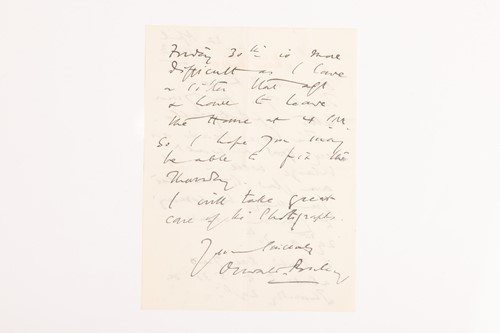 Friday 30th is more
difficult as I have
a sitter that aft
& have to leave
the House at 4 P.M.
So I hope you may
be able to fix the
Thursday.
I will take great
care of the Photographs.
Yours sincerely
Oswald Birley